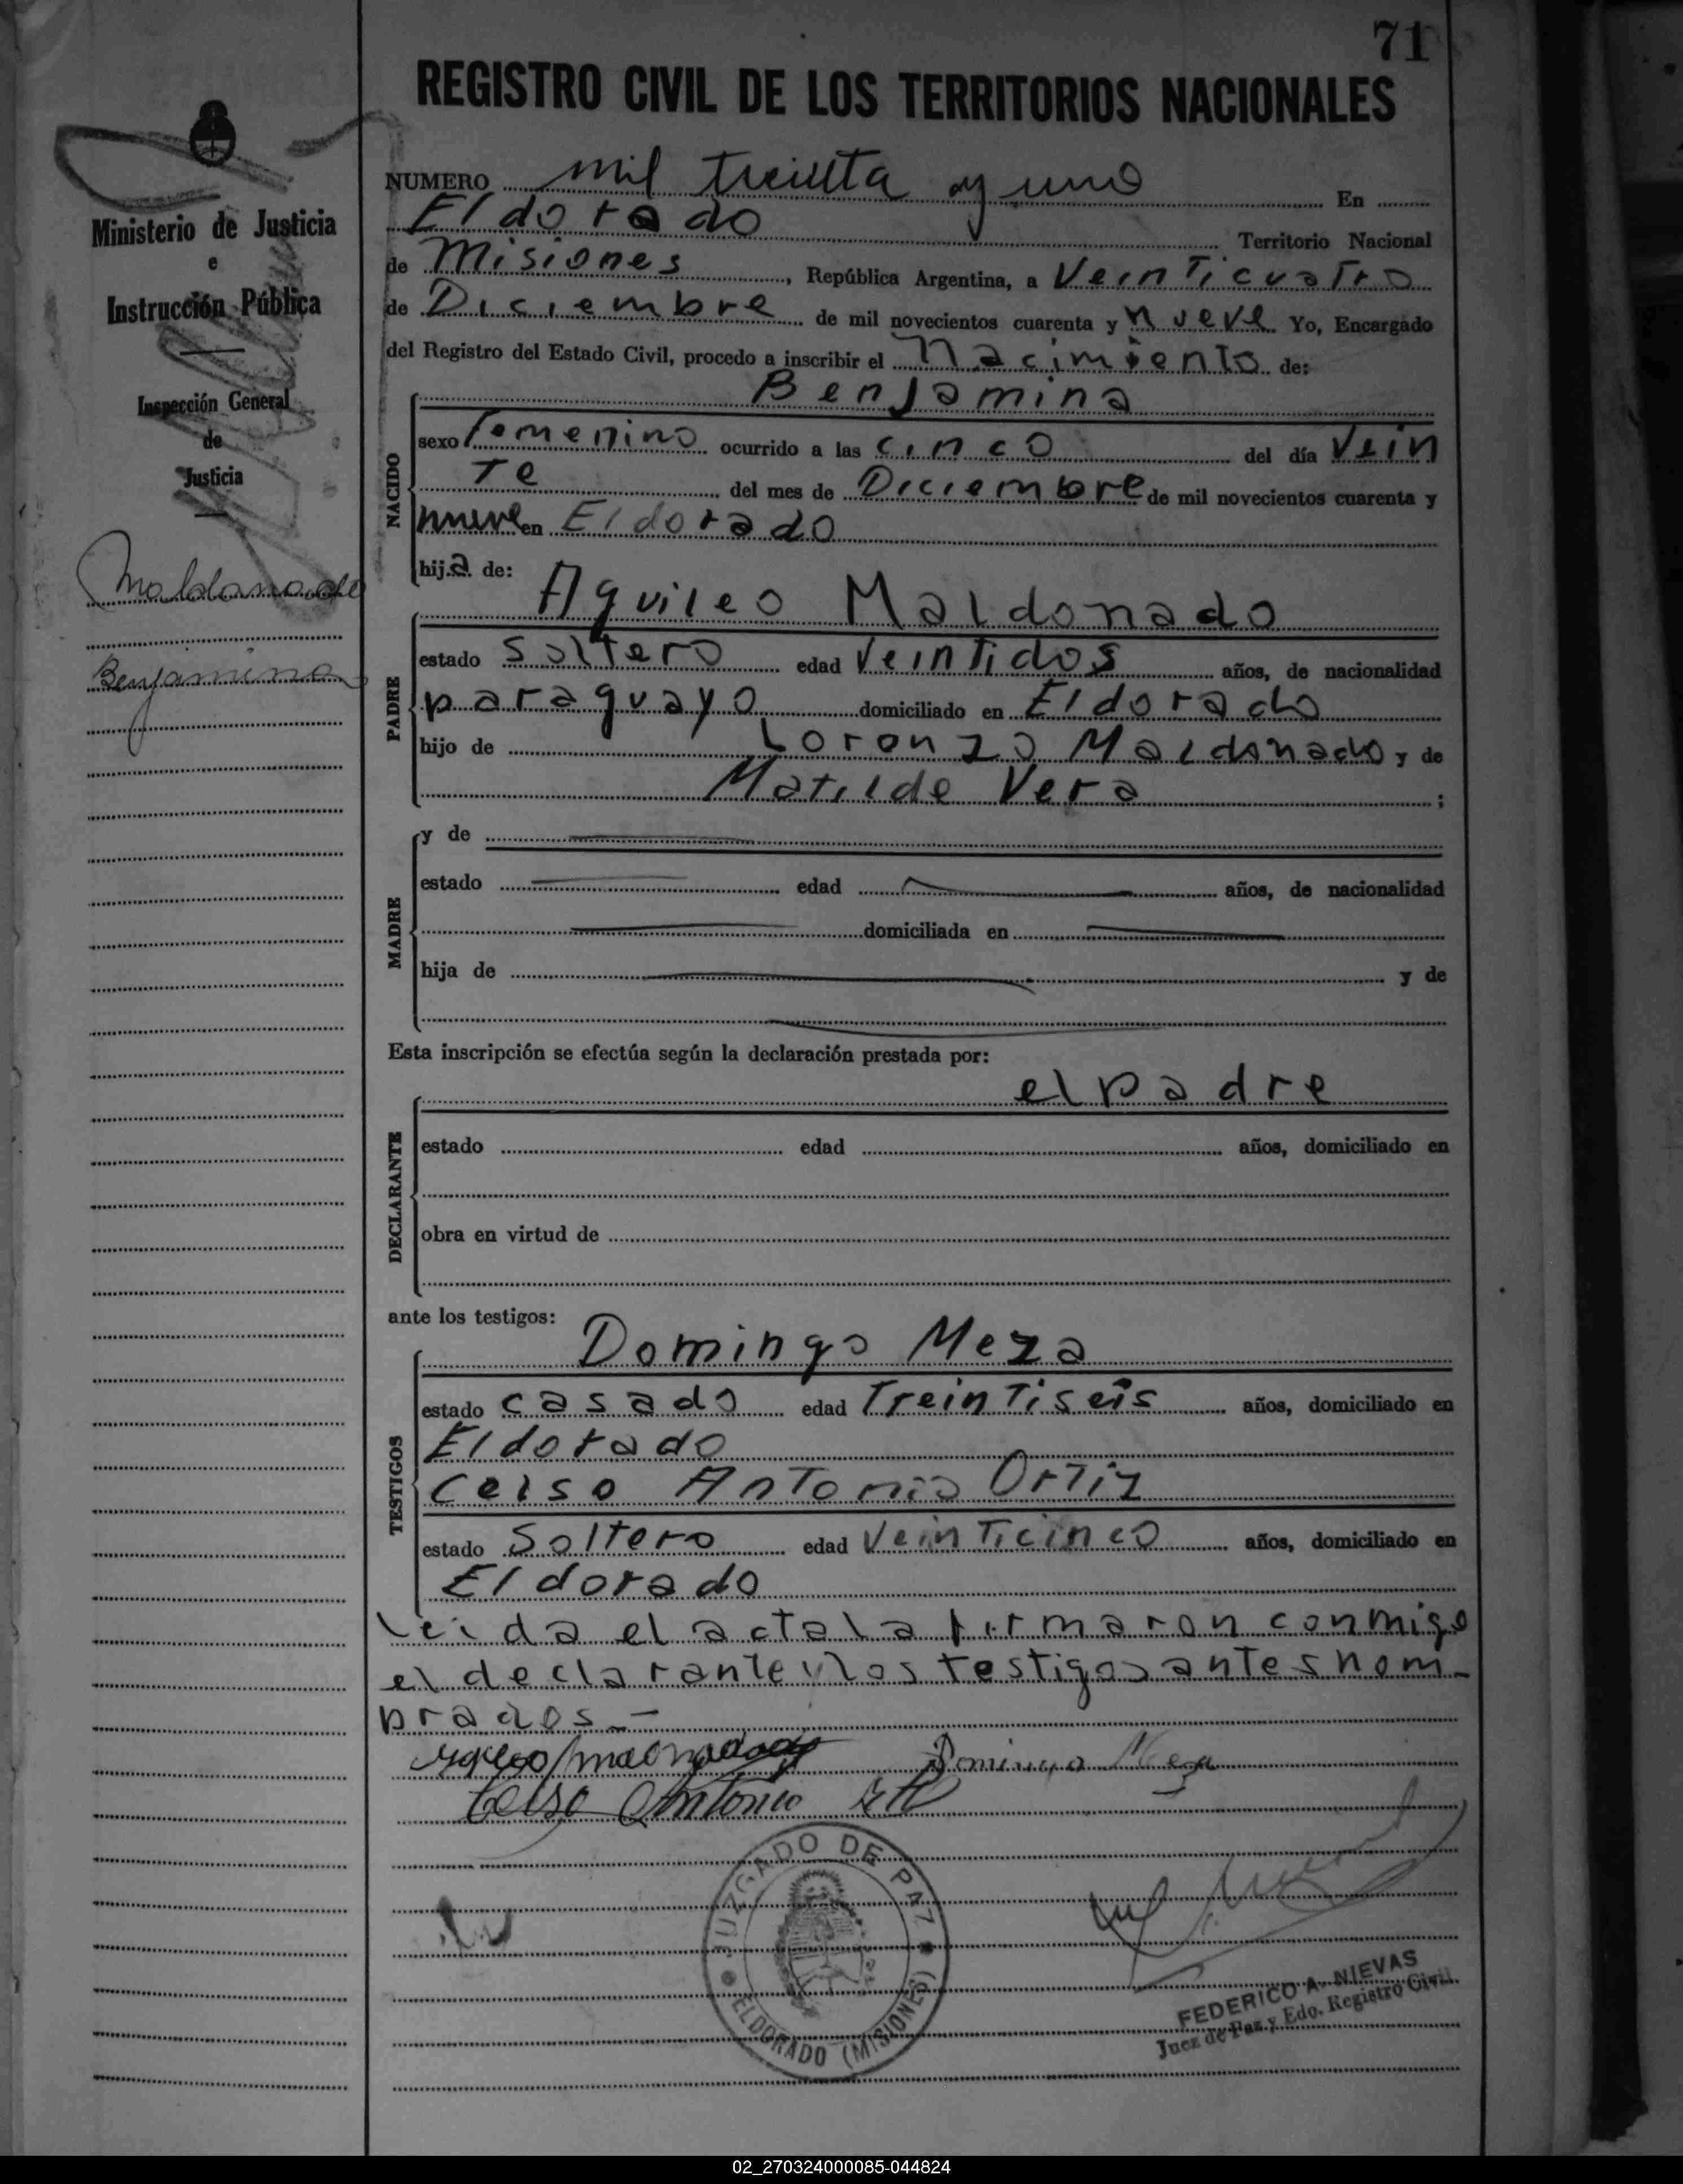 71
REGISTRO CIVIL DE LOS TERRITORIOS NACIONALES
Ministerio de Justicia
e
Instrucción Pública
Inspección General
de
Justicia
Maldonado
Benjamina
NUMERO mil treinta y uno En
Eldorado Territorio Nacional
de Misiones, República Argentina, a Veinticuatro
de Diciembre de mil novecientos cuarenta y nueve Yo, Encargado
del Registro del Estado Civil, procedo a inscribir el nacimiento de:
NACIDO
Benjamina
sexo femenino ocurrido a las cinco del día Vein
te del mes de Diciembre de mil novecientos cuarenta y
nueve en Eldorado
hija de:
PADRE
Aquileo Maldonado
estado soltero edad Veintidos años, de nacionalidad
paraguayo domiciliado en Eldorado
hijo de Lorenzo Maldonado y de
Matilde Vera ;
MADRE
y de
estado edad años, de nacionalidad
domiciliada en
hija de y de
Esta inscripción se efectúa según la declaración prestada por:
DECLARANTE
el padre
estado edad años, domiciliado en
obra en virtud de
ante los testigos:
TESTIGOS
Domingo Meza
estado casado edad Treintiseis años, domiciliado en
Eldorado
Celso Antonio Ortiz
estado Soltero edad Veinticinco años, domiciliado en
Eldorado
leida el acta la firmaron conmigo
el declarante y los testigos antes nom-
brados.—
Domingo Meza
Celso Antonio
JUZGADO DE PAZ
ELDORADO (MISIONES)
FEDERICO A. NIEVAS
Juez de Paz y Edo. Registro Civil
02_270324000085-044824